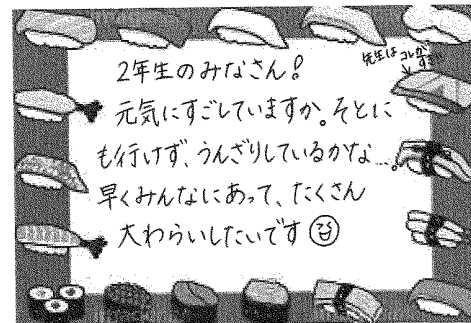 2年生のみなさん!
元気にすごしていますか。そとに
も行けず、うんざりしているかな…。
早くみんなにあって、たくさん
大わらいしたいです
先生はコレが
すき